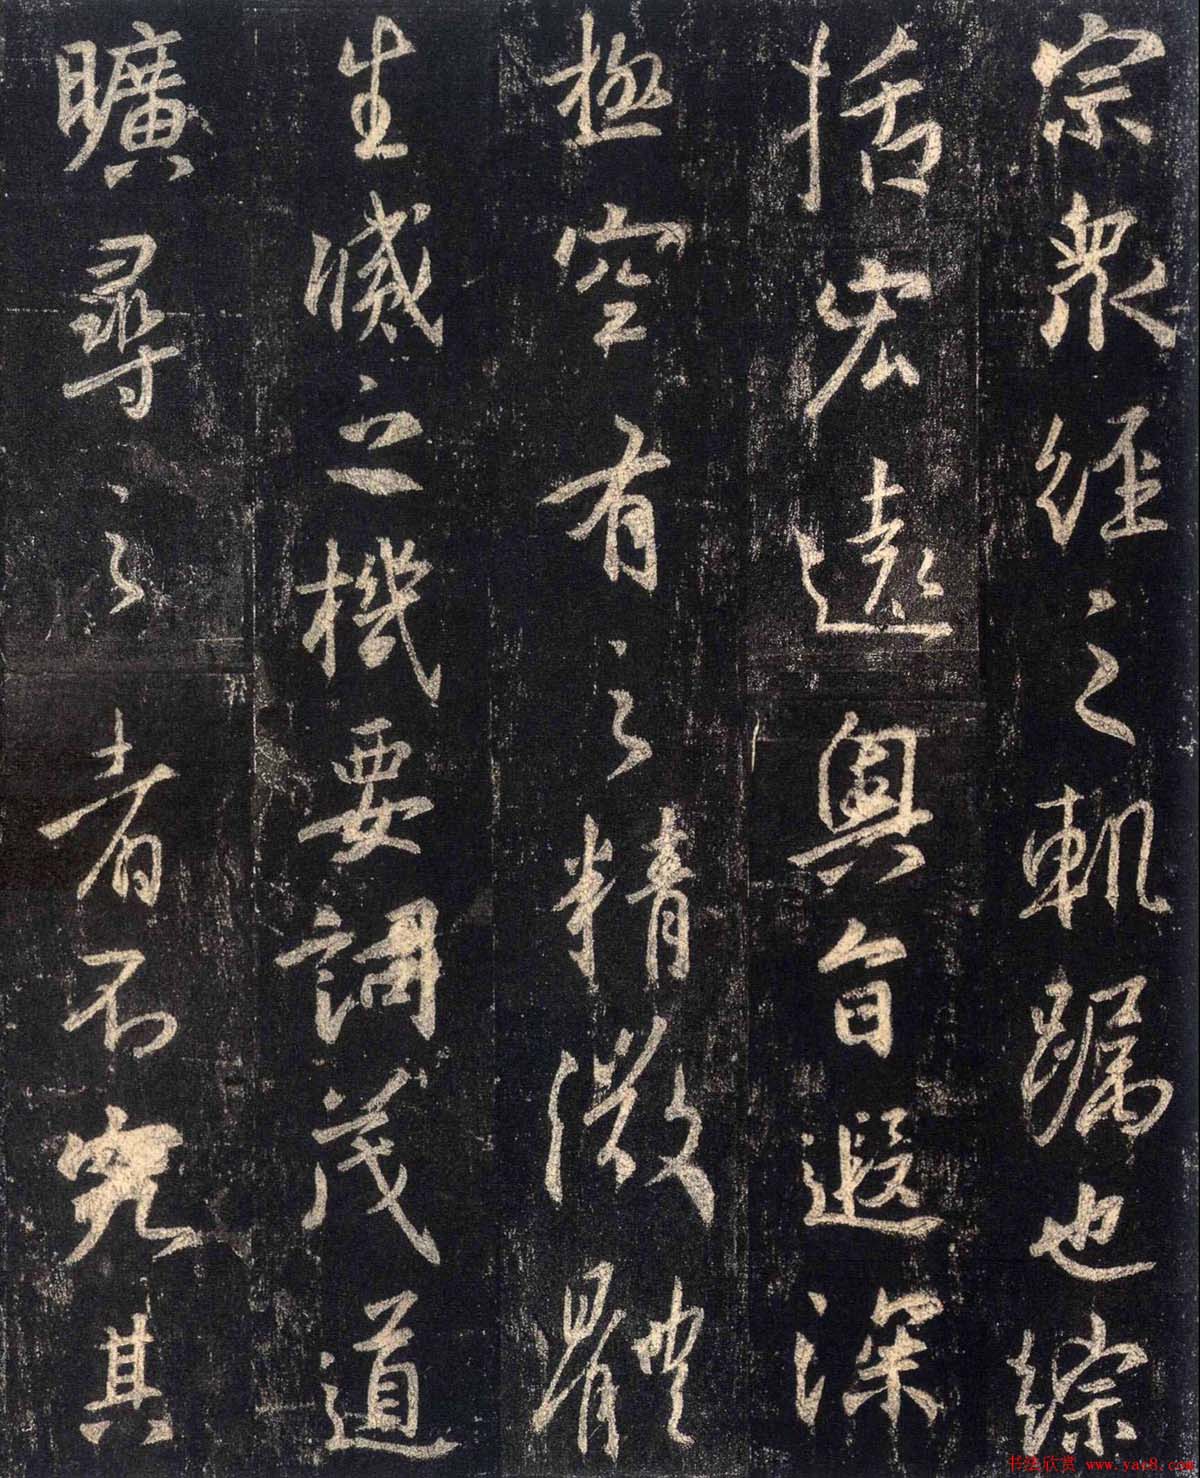 宗衆經之軌躅也綜
括宏遠奧旨遐深
極空有之精微體
生滅之機要詞茂道
曠尋之者不究其
书法欣赏 www.yac8.com